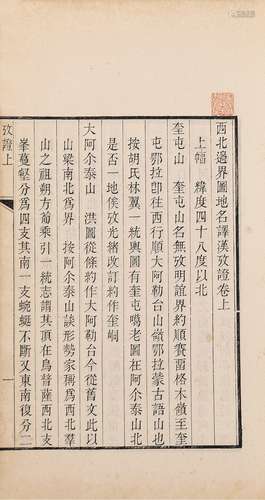 西北邊界圖地名譯漢攷證卷上
上幅　緯度四十八度以北
奎屯山　奎屯山名無攷明誼界約順賽畱格木嶺至奎
屯鄂拉卽往西行順大阿勒台山嶺鄂拉蒙古語山也
按胡氏林翼一統輿圖有奎屯噶老圖在阿尒泰山北
是否一地俟攷光緖改訂約作奎峒
大阿尒泰山　洪圖從條約作大阿勒台今從舊文此以
山梁南北爲界　按阿尒泰山談形勢家稱爲西北羣
山之祖朔方備乘引一統志謂其頂在烏普薩西北支
峯蔓壑分爲四支其南一支蜿蜒不斷又東南復分二
攷證上
一